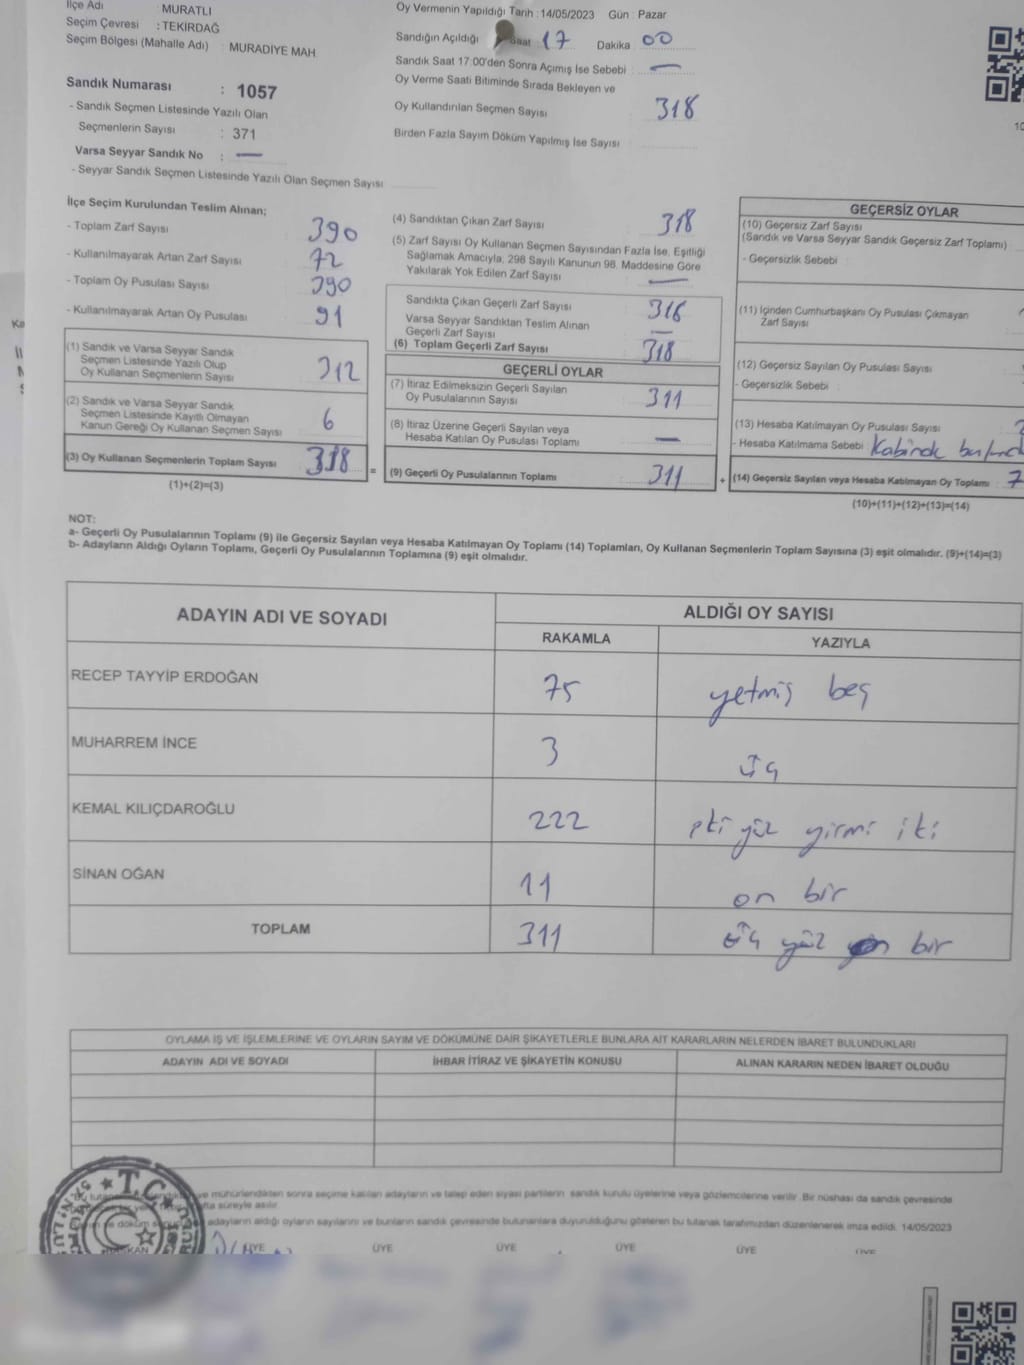 İlçe Adı : MURATLI
Seçim Çevresi : TEKİRDAĞ
Seçim Bölgesi (Mahalle Adı) : MURADİYE MAH.
Sandık Numarası : 1057
- Sandık Seçmen Listesinde Yazılı Olan
Seçmenlerin Sayısı : 371
Varsa Seyyar Sandık No : —
- Seyyar Sandık Seçmen Listesinde Yazılı Olan Seçmen Sayısı
Oy Vermenin Yapıldığı Tarih : 14/05/2023 Gün : Pazar
Sandığın Açıldığı Saat 17 Dakika 00
Sandık Saat 17:00'den Sonra Açımış İse Sebebi : —
Oy Verme Saati Bitiminde Sırada Bekleyen ve
Oy Kullandırılan Seçmen Sayısı : 318
Birden Fazla Sayım Döküm Yapılmış İse Sayısı
İlçe Seçim Kurulundan Teslim Alınan;
- Toplam Zarf Sayısı 390
- Kullanılmayarak Artan Zarf Sayısı 72
- Toplam Oy Pusulası Sayısı 390
- Kullanılmayarak Artan Oy Pusulası 91
(1) Sandık ve Varsa Seyyar Sandık
Seçmen Listesinde Yazılı Olup
Oy Kullanan Seçmenlerin Sayısı 312
(2) Sandık ve Varsa Seyyar Sandık
Seçmen Listesinde Kayıtlı Olmayan
Kanun Gereği Oy Kullanan Seçmen Sayısı 6
(3) Oy Kullanan Seçmenlerin Toplam Sayısı 318 =
(1)+(2)=(3)
(4) Sandıktan Çıkan Zarf Sayısı 318
(5) Zarf Sayısı Oy Kullanan Seçmen Sayısından Fazla İse, Eşitliği
Sağlamak Amacıyla, 298 Sayılı Kanunun 98. Maddesine Göre
Yakılarak Yok Edilen Zarf Sayısı —
Sandıkta Çıkan Geçerli Zarf Sayısı 318
Varsa Seyyar Sandıktan Teslim Alınan
Geçerli Zarf Sayısı —
(6) Toplam Geçerli Zarf Sayısı 318
GEÇERLİ OYLAR
(7) İtiraz Edilmeksizin Geçerli Sayılan
Oy Pusulalarının Sayısı 311
(8) İtiraz Üzerine Geçerli Sayılan veya
Hesaba Katılan Oy Pusulası Toplamı —
(9) Geçerli Oy Pusulalarının Toplamı 311 +
GEÇERSİZ OYLAR
(10) Geçersiz Zarf Sayısı
(Sandık ve Varsa Seyyar Sandık Geçersiz Zarf Toplamı)
- Geçersizlik Sebebi
(11) İçinden Cumhurbaşkanı Oy Pusulası Çıkmayan
Zarf Sayısı
(12) Geçersiz Sayılan Oy Pusulası Sayısı
- Geçersizlik Sebebi
(13) Hesaba Katılmayan Oy Pusulası Sayısı
- Hesaba Katılmama Sebebi
(14) Geçersiz Sayılan veya Hesaba Katılmayan Oy Toplamı : 7
(10)+(11)+(12)+(13)=(14)
NOT:
a- Geçerli Oy Pusulalarının Toplamı (9) ile Geçersiz Sayılan veya Hesaba Katılmayan Oy Toplamı (14) Toplamları, Oy Kullanan Seçmenlerin Toplam Sayısına (3) eşit olmalıdır. (9)+(14)=(3)
b- Adayların Aldığı Oyların Toplamı, Geçerli Oy Pusulalarının Toplamına (9) eşit olmalıdır.
ADAYIN ADI VE SOYADI ALDIĞI OY SAYISI
RAKAMLA YAZIYLA
RECEP TAYYİP ERDOĞAN 75 yetmiş beş
MUHARREM İNCE 3 üç
KEMAL KILIÇDAROĞLU 222 iki yüz yirmi iki
SİNAN OĞAN 11 on bir
TOPLAM 311 üç yüz on bir
OYLAMA İŞ VE İŞLEMLERİNE VE OYLARIN SAYIM VE DÖKÜMÜNE DAİR ŞİKAYETLERLE BUNLARA AİT KARARLARIN NELERDEN İBARET BULUNDUKLARI
ADAYIN ADI VE SOYADI İHBAR İTİRAZ VE ŞİKAYETİN KONUSU ALINAN KARARIN NEDEN İBARET OLDUĞU
ve mühürlendikten sonra seçime katılan adayların ve talep eden siyasi partilerin sandık kurulu üyelerine veya gözlemcilerine verilir. Bir nüshası da sandık çevresinde
süreyle asılır.
adayların aldığı oyların sayılarını ve bunların sandık çevresinde bulunanlara duyurulduğunu gösteren bu tutanak tarafımızdan düzenlenerek imza edildi. 14/05/2023
T.C.
BAŞKAN ÜYE ÜYE ÜYE ÜYE ÜYE ÜYE